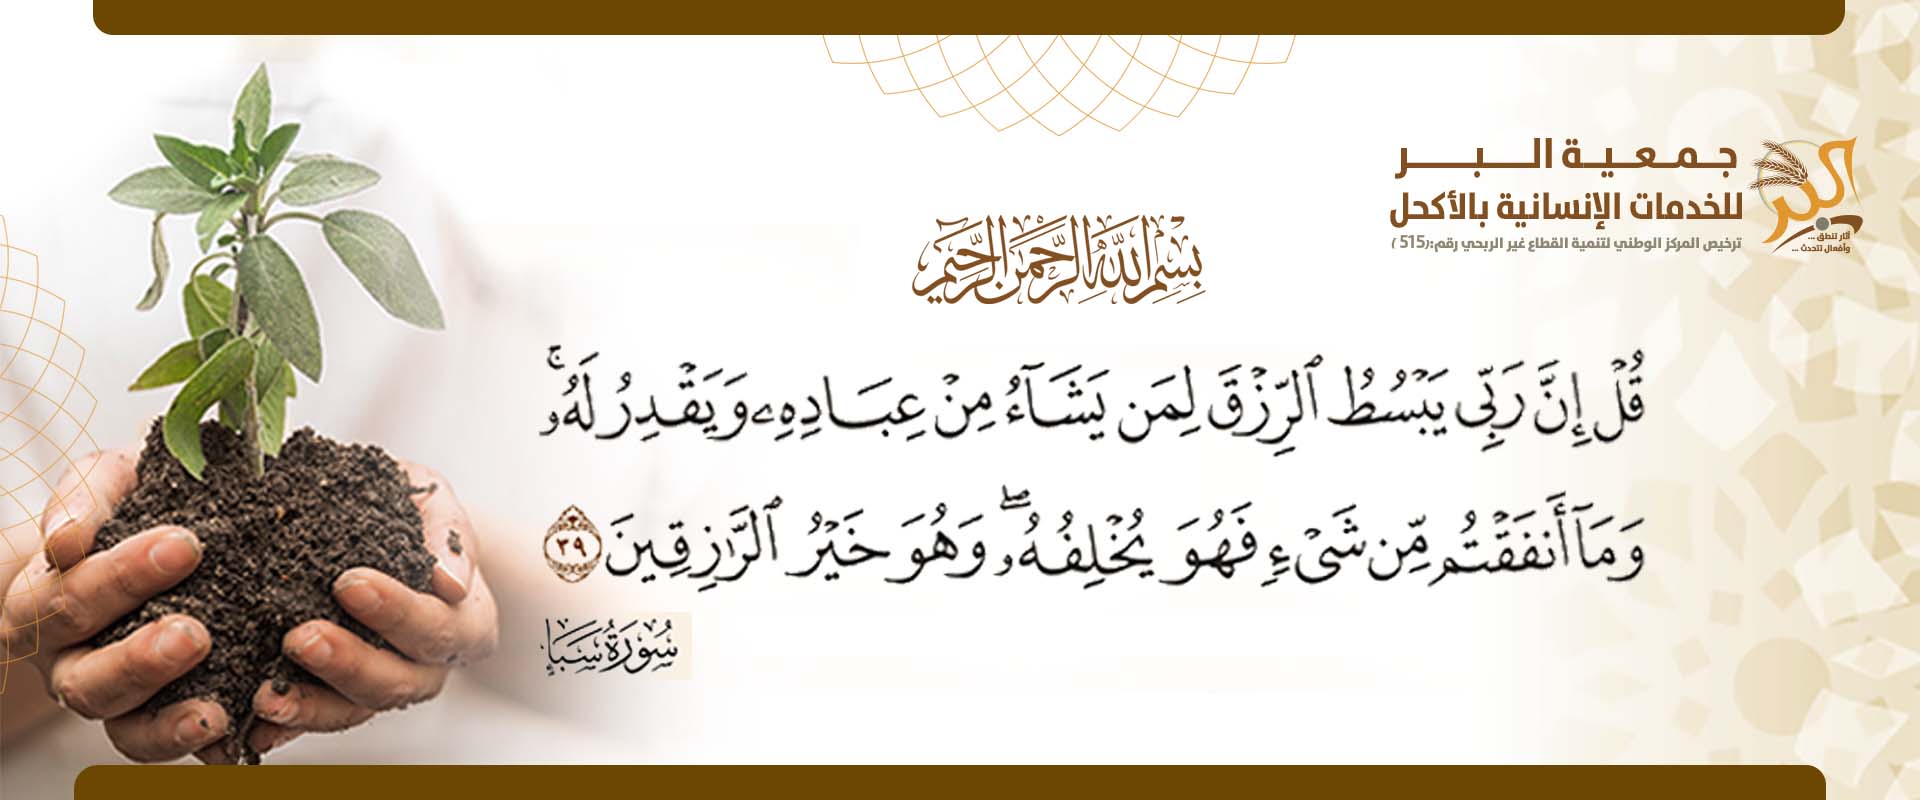 جمعية البر
للخدمات الإنسانية بالأكحل
ترخيص المركز الوطني لتنمية القطاع غير الربحي رقم:(515)
البر
آثار تنطق ...
وأفعال تتحدث ...
بِسْمِ اللَّهِ الرَّحْمَٰنِ الرَّحِيمِ
قُلْ إِنَّ رَبِّى يَبْسُطُ ٱلرِّزْقَ لِمَن يَشَآءُ مِنْ عِبَادِهِۦ وَيَقْدِرُ لَهُۥۚ
وَمَآ أَنفَقْتُم مِّن شَىْءٍ فَهُوَ يُخْلِفُهُۥۖ وَهُوَ خَيْرُ ٱلرَّٰزِقِينَ ٣٩
سُورَةُ سَبَإٍ